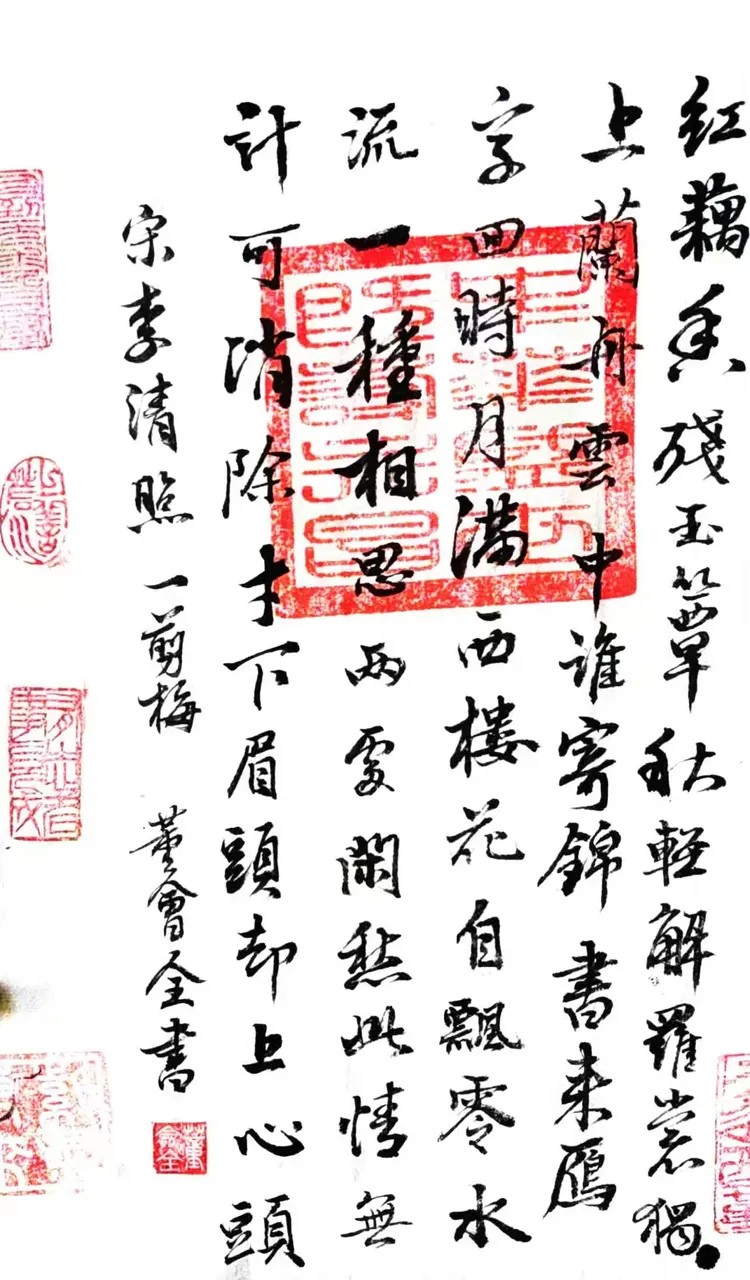 红藕香残玉簟秋軽解羅裳獨
上蘭舟雲中誰寄錦書来雁
字回時月満西楼花自飄零水
流一種相思兩處閑愁此情無
計可消除才下眉頭却上心頭
宋李清照一剪梅
董會全書
董會全